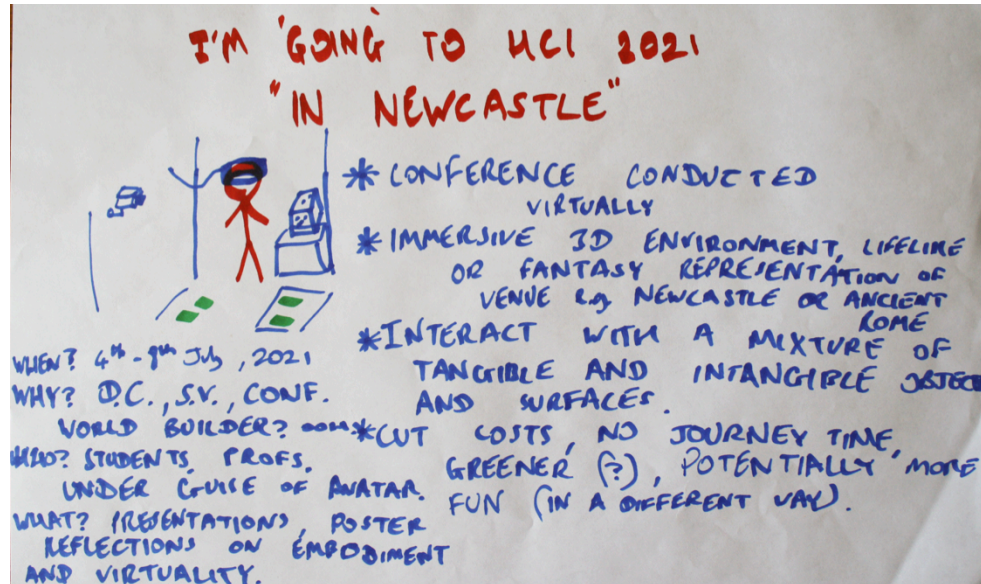 I'M GOING TO HCI 2021
"IN NEWCASTLE"
* CONFERENCE CONDUCTED
VIRTUALLY
* IMMERSIVE 3D ENVIRONMENT, LIFELIKE
OR FANTASY REPRESENTATION OF
VENUE e.g. NEWCASTLE OR ANCIENT
ROME
* INTERACT WITH A MIXTURE OF
TANGIBLE AND INTANGIBLE OBJECTS
AND SURFACES.
* CUT COSTS, NO JOURNEY TIME,
GREENER (?), POTENTIALLY MORE
FUN (IN A DIFFERENT WAY).
WHEN? 4th - 9th July, 2021
WHY? D.C., S.V., CONF.
WORLD BUILDER?
WHO? STUDENTS, PROFS,
UNDER GUISE OF AVATAR.
WHAT? PRESENTATIONS, POSTER
REFLECTIONS ON EMBODIMENT
AND VIRTUALITY.